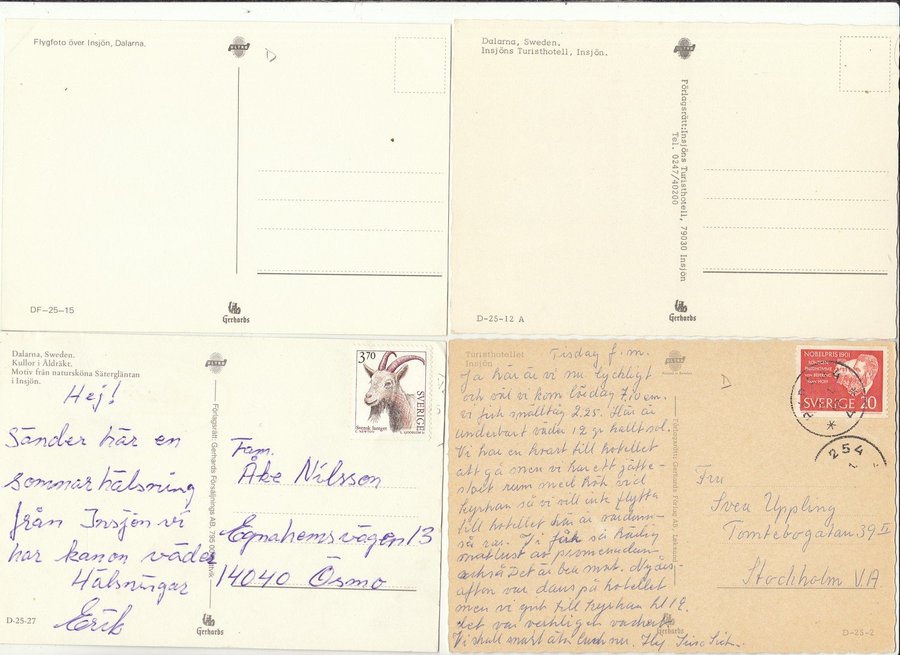 Flygfoto över Insjön, Dalarna.
ULTRA
D
DF-25-15
Gerhards
Dalarna, Sweden.
Insjöns Turisthotell, Insjön.
ULTRA
Förlagsrätt: Insjöns Turisthotell, 79030 Insjön
Tel. 0247/40200
D-25-12 A
Gerhards
Dalarna, Sweden.
Kullor i Åldräkt.
Motiv från natursköna Sätergläntan
i Insjön.
ULTRA
Hej!
Sänder här en
sommarhälsning
från Insjön vi
har kanon väder
Hälsningar
Erik
Förlagsrätt: Gerhards Försäljnings AB, 795 00
3.70
SVERIGE
Svensk lantget
Fam.
Åke Nilsson
Egnahemsvägen 13
14040 Ösmo
D-25-27
Gerhards
Turisthotellet
Insjön
Tisdag f.m.
Ja här är vi nu lyckligt
och väl vi kom lördag 7,10 em.
vi fick småltåg 225. Här är
underbart väder 12 gr halt sol.
Vi har en kvart till hotellet
att gå men vi har ett jätte-
stort rum med kök vid
kyrkan så vi vill inte flytta
till hotellet
så rar. Vi får så härlig
matlust av promenaden
också. Det är bra mat. Nyårs-
afton var dans på hotellet
men vi gick till kyrkan kl 12.
det var verkligen vackert
Vi skall snart äta lunch nu. Hej
Förlagsrätt: Gerhards Förlag AB, Leksand
D
NOBELPRIS 1901
SVERIGE 20
254
Fru
Sven Uppling
Tomtebogatan 39 II
Stockholm VA
D-25-2
Gerhards